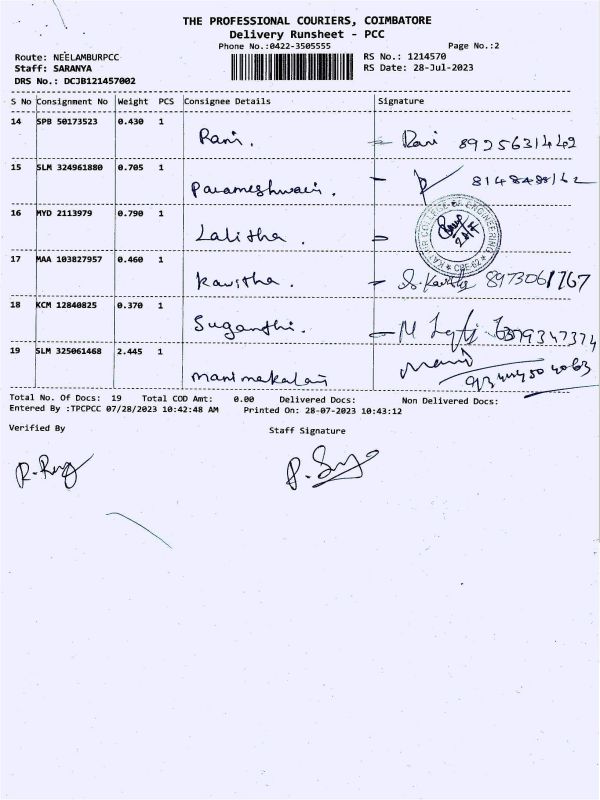 THE PROFESSIONAL COURIERS, COIMBATORE
Delivery Runsheet - PCC
Phone No.:0422-3505555 Page No.:2
Route: NEELAMBURPCC RS No.: 1214570
Staff: SARANYA RS Date: 28-Jul-2023
DRS No.: DCJB121457002
S No Consignment No Weight PCS Consignee Details Signature
14 SPB 50173523 0.430 1
Rani. Rani
15 SLM 324961880 0.705 1
Parameshwari.
16 MYD 2113979 0.790 1
Lalitha.
KATHIR COLLEGE OF ENGINEERING
17 MAA 103827957 0.460 1
Kavitha. S. Kavitha 8973061767
18 KCM 12840825 0.370 1
Suganthi.
19 SLM 325061468 2.445 1
manimekalai Mani
Total No. Of Docs: 19 Total COD Amt: 0.00 Delivered Docs: Non Delivered Docs:
Entered By :TPCPCC 07/28/2023 10:42:48 AM Printed On: 28-07-2023 10:43:12
Verified By Staff Signature